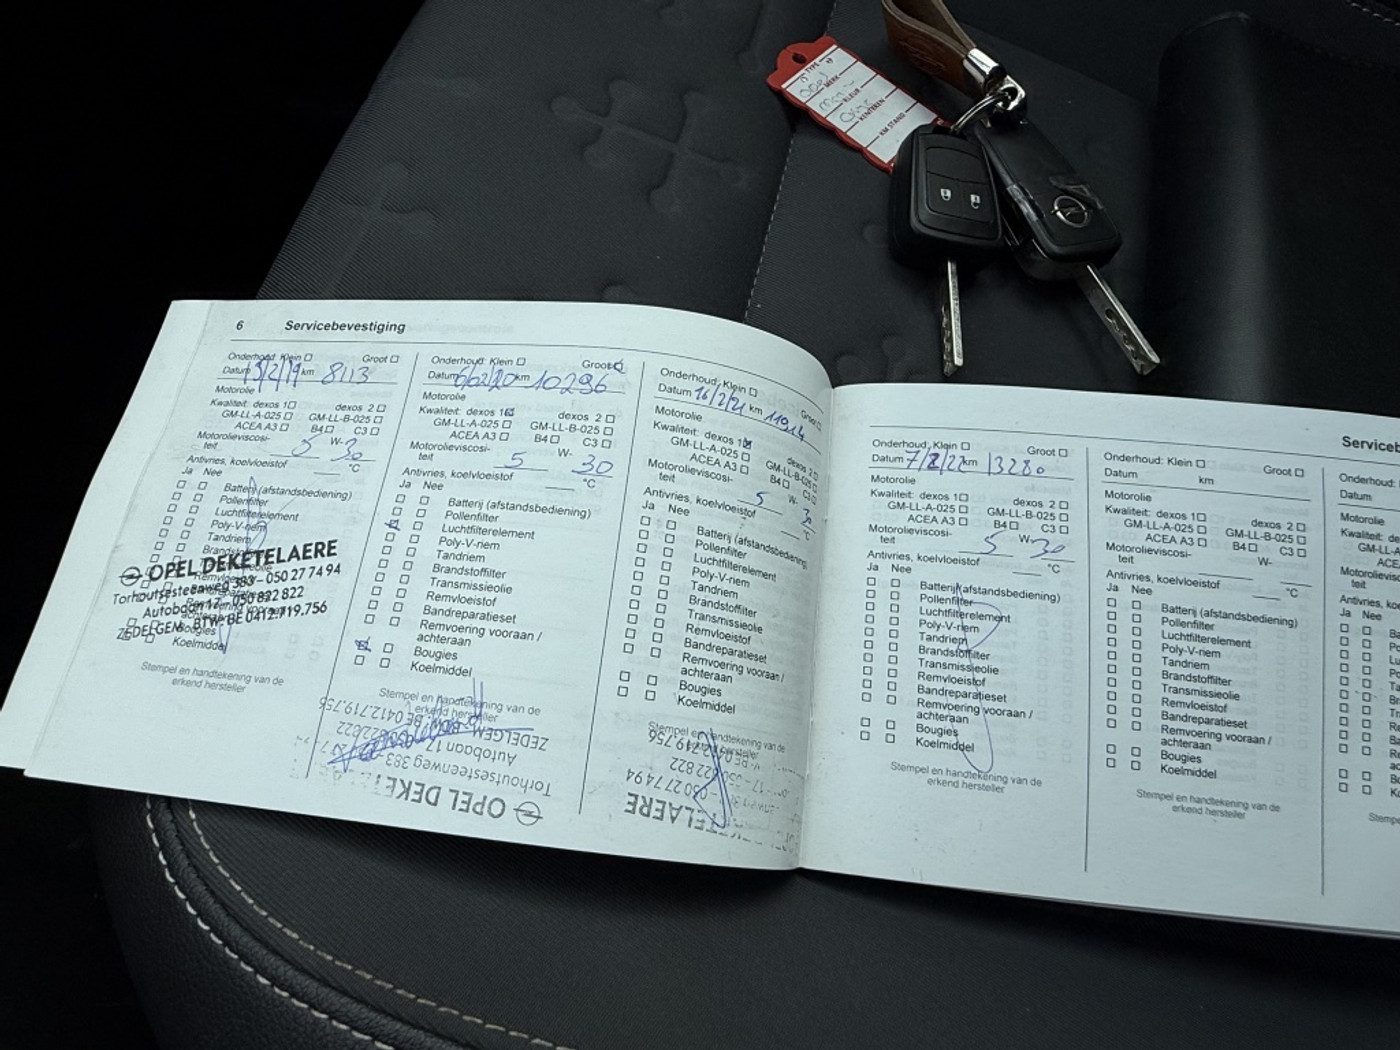 TYPE
N°
Opel
MERK
KLEUR
KENTEKEN
KM STAND
6 Servicebevestiging
Onderhoud: Klein Groot
Datum 15/2/19 km 8113
Motorolie
Kwaliteit: dexos 1 dexos 2
GM-LL-A-025 GM-LL-B-025
ACEA A3 B4 C3
Motorolieviscosi-
teit 5 W- 30
Antivries, koelvloeistof °C
Ja Nee
Batterij (afstandsbediening)
Pollenfilter
Luchtfilterelement
Poly-V-riem
Tandriem
OPEL DEKETELAERE
Torhoutsesteenweg 383 - 050 27 74 94
Autobaan 17 - 050 822 822
ZEDELGEM - BTW: BE 0412.719.756
Bougies
Koelmiddel
Stempel en handtekening van de
erkend hersteller
Onderhoud: Klein Groot
Datum 6/2/20 km 10296
Motorolie
Kwaliteit: dexos 1 dexos 2
GM-LL-A-025 GM-LL-B-025
ACEA A3 B4 C3
Motorolieviscosi-
teit 5 W- 30
Antivries, koelvloeistof °C
Ja Nee
Batterij (afstandsbediening)
Pollenfilter
Luchtfilterelement
Poly-V-riem
Tandriem
Brandstoffilter
Transmissieolie
Remvloeistof
Bandreparatieset
Remvoering vooraan /
achteraan
Bougies
Koelmiddel
Stempel en handtekening van de
erkend hersteller
ZEDELGEM BTW: BE 0412.719.756
Autobaan 17 822.822
Torhoutsesteenweg 383
OPEL DEKE
Onderhoud: Klein Groot
Datum 16/2/21 km 11914
Motorolie
Kwaliteit: dexos 1 dexos 2
GM-LL-A-025 GM-LL-B-025
ACEA A3 B4 C3
Motorolieviscosi-
teit 5 W- 30
Antivries, koelvloeistof °C
Ja Nee
Batterij (afstandsbediening)
Pollenfilter
Luchtfilterelement
Poly-V-riem
Tandriem
Brandstoffilter
Transmissieolie
Remvloeistof
Bandreparatieset
Remvoering vooraan /
achteraan
Bougies
Koelmiddel
Stempel en handtekening van de
erkend hersteller
719.756
822
050 27 74 94
TELAERE
Serviceb
Onderhoud: Klein Groot
Datum 7/2/22 km 13280
Motorolie
Kwaliteit: dexos 1 dexos 2
GM-LL-A-025 GM-LL-B-025
ACEA A3 B4 C3
Motorolieviscosi-
teit 5 W- 30
Antivries, koelvloeistof °C
Ja Nee
Batterij (afstandsbediening)
Pollenfilter
Luchtfilterelement
Poly-V-riem
Tandriem
Brandstoffilter
Transmissieolie
Remvloeistof
Bandreparatieset
Remvoering vooraan /
achteraan
Bougies
Koelmiddel
Stempel en handtekening van de
erkend hersteller
Onderhoud: Klein Groot
Datum km
Motorolie
Kwaliteit: dexos 1 dexos 2
GM-LL-A-025 GM-LL-B-025
ACEA A3 B4 C3
Motorolieviscosi-
teit W-
Antivries, koelvloeistof °C
Ja Nee
Batterij (afstandsbediening)
Pollenfilter
Luchtfilterelement
Poly-V-riem
Tandriem
Brandstoffilter
Transmissieolie
Remvloeistof
Bandreparatieset
Remvoering vooraan /
achteraan
Bougies
Koelmiddel
Stempel en handtekening van de
erkend hersteller
Onderhoud:
Datum
Motorolie
Kwaliteit: de
GM-LL
ACE
Motorolievisc
teit
Antivries, k
Ja Nee
Stempe